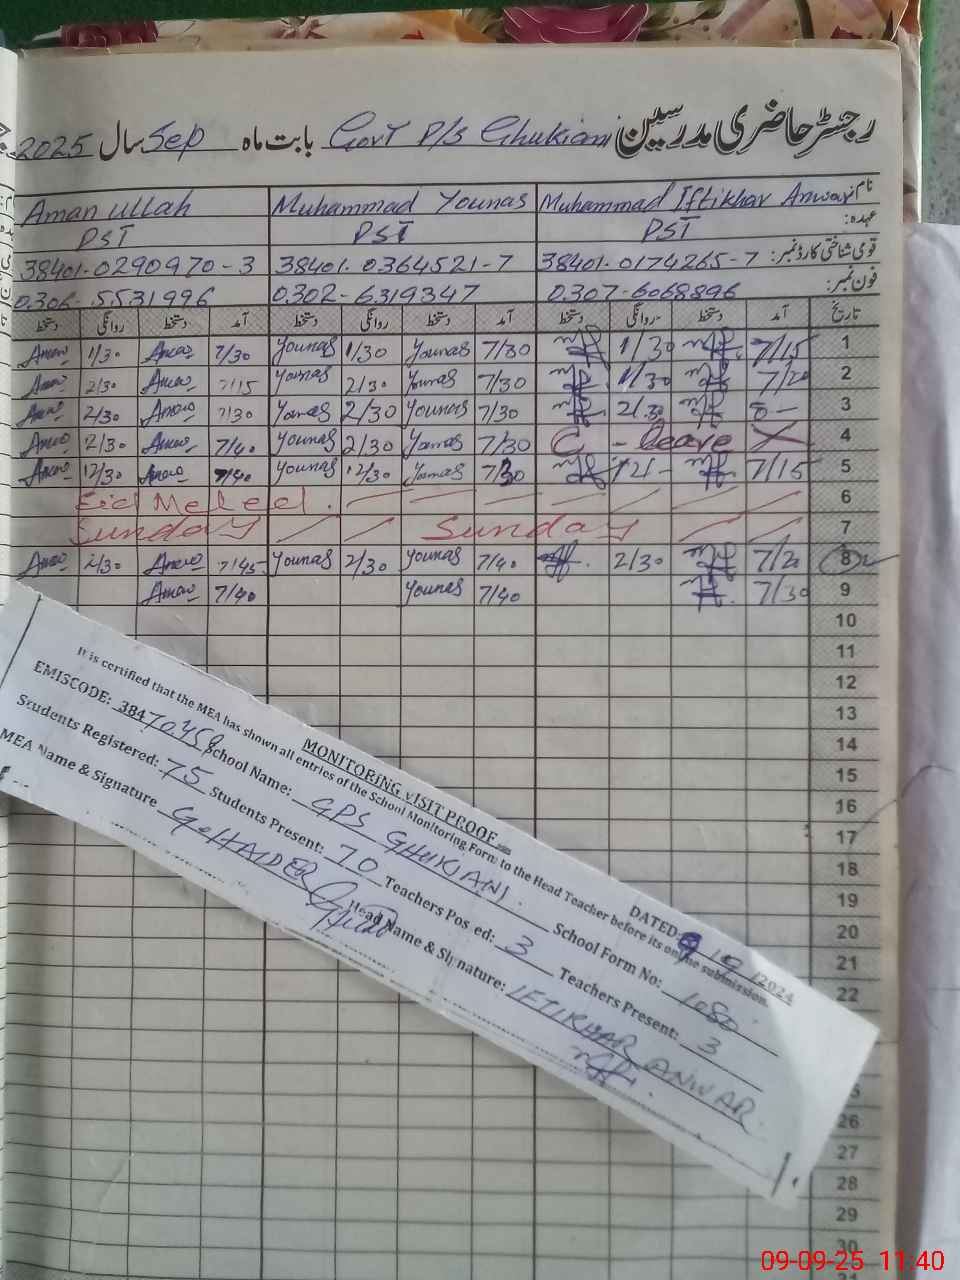 رجسٹر حاضری مدرسین Govt P/s Ghukiani بابت ماہ Sep سال 2025
نام Muhammad Iftikhar Anwar Muhammad Younas Aman ullah
عہدہ: PST PST PST
قومی شناختی کارڈ نمبر: 38401-0174265-7 38401-0364521-7 38401-0290970-3
فون نمبر: 0307-6068896 0302-6319347 0306-5531996
تاریخ آمد دستخط روانگی دستخط آمد دستخط روانگی دستخط آمد دستخط روانگی دستخط
1 7/15 1/30 7/30 Younas 1/30 Younas 7/30 Aman 1/30 Aman
2 7/20 1/30 7/30 Younas 2/30 Younas 7/15 Aman 2/30 Aman
3 8- 2/30 7/30 Younas 2/30 Younas 7/30 Aman 2/30 Aman
4 C - leave X 7/30 Younas 2/30 Younas 7/40 Aman 2/30 Aman
5 7/15 12/- 7/30 Younas 12/30 Younas 7/40 Aman 12/30 Aman
6 Eid Meleed.
7 Sunday Sunday
8 7/20 2/30 7/40 Younas 2/30 Younas 7/45 Aman 2/30 Aman
9 7/30 7/40 Younas 7/40 Aman
10
11
12
13
14
15
16
17
18
19
20
21
22
26
27
28
29
30
MONITORING VISIT PROOF
DATED: 9/9/2024
It is certified that the MEA has shown all entries of the School Monitoring Form to the Head Teacher before its online submission.
EMISCODE: 38470458 School Name: GPS GHUKIANI School Form No: 1080
Students Registered: 75 Students Present: 70 Teachers Posted: 3 Teachers Present: 3
MEA Name & Signature G-HAIDER Head Name & Signature: IFTIKHAR ANWAR
09-09-25 11:40